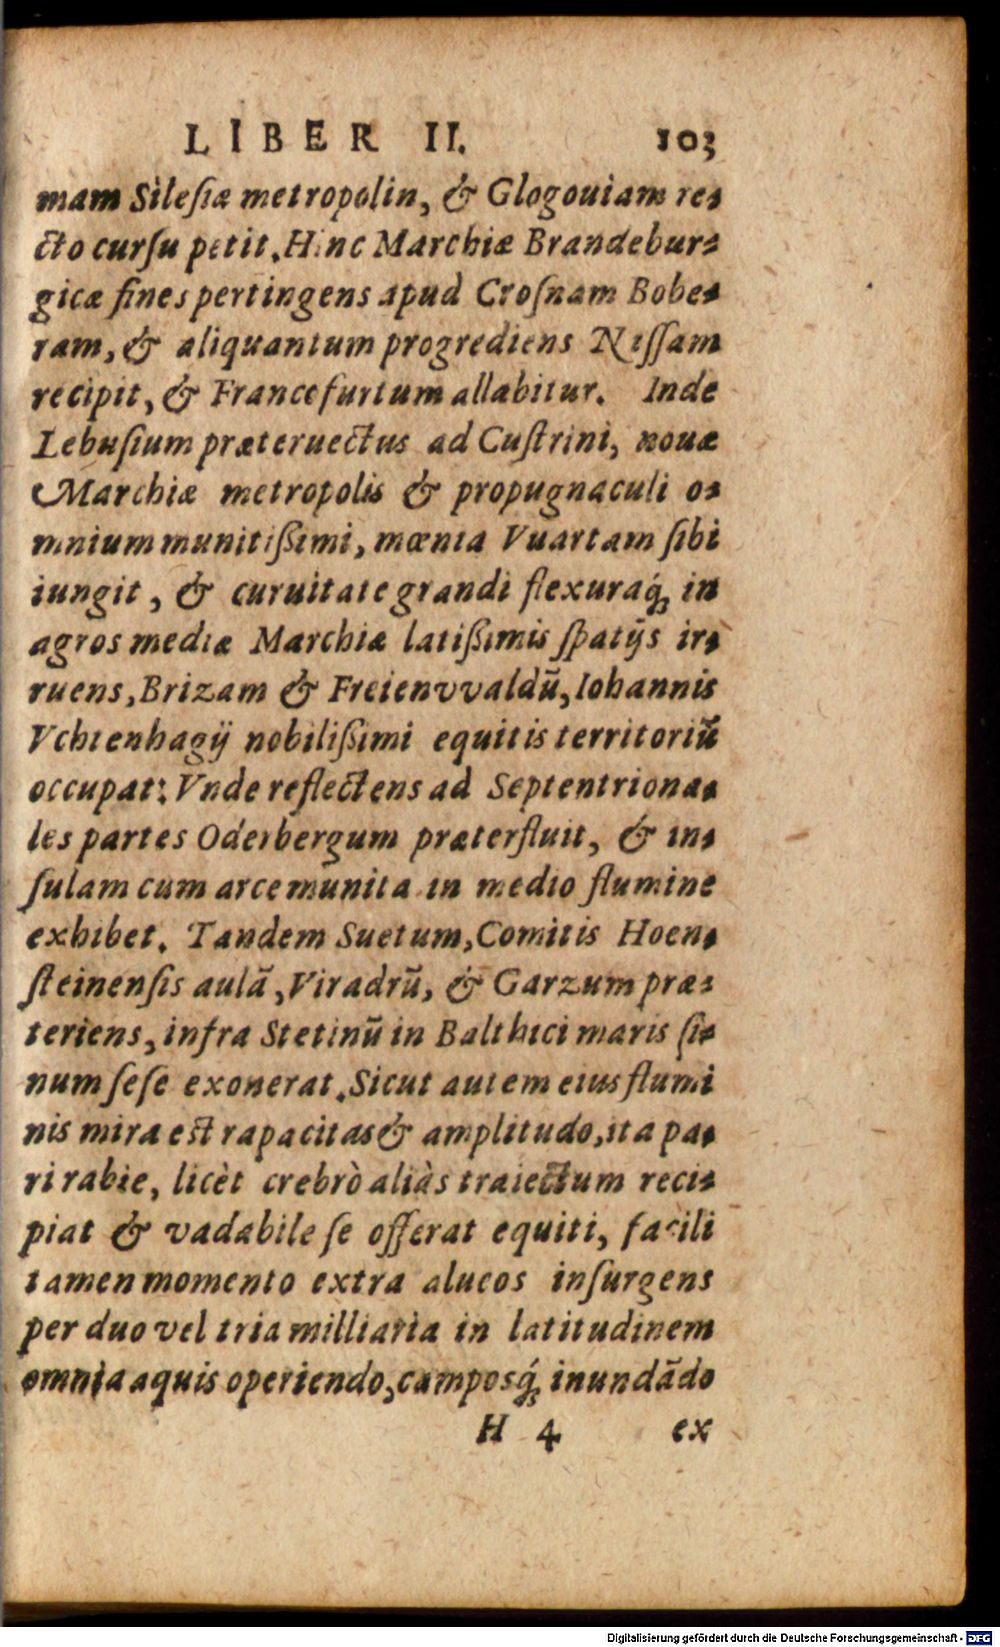 LIBER II. 103
mam Silesiæ metropolin, & Glogouiam re-
cto cursu petit. Hinc Marchiæ Brandebur-
gicæ fines pertingens apud Crosnam Bobe-
ram, & aliquantum progrediens Nissam
recipit, & Francefurtum allabitur. Inde
Lebusium præteruectus ad Custrini, nouæ
Marchiæ metropolis & propugnaculi o-
mnium munitißimi, mœnia Vuartam sibi
iungit, & curuitate grandi flexuraq́; in
agros mediæ Marchiæ latißimis spatijs ir-
ruens, Brizam & Freienvvaldũ, Iohannis
Vchtenhagij nobilißimi equitis territoriũ
occupat: Vnde reflectens ad Septentriona-
les partes Oderbergum præterfluit, & in-
sulam cum arce munita in medio flumine
exhibet. Tandem Suetum, Comitis Hoen-
steinensis aulã, Viradrũ, & Garzum præ-
teriens, infra Stetinũ in Balthici maris si-
num sese exonerat. Sicut autem eius flumi
nis mira est rapacitas & amplitudo, ita pa-
ri rabie, licèt crebrò aliàs traiectum reci-
piat & vadabile se offerat equiti, facili
tamen momento extra alueos insurgens
per duo vel tria milliaria in latitudinem
omnia aquis operiendo, camposq́; inundãdo
H 4 ex
Digitalisierung gefördert durch die Deutsche Forschungsgemeinschaft - DFG